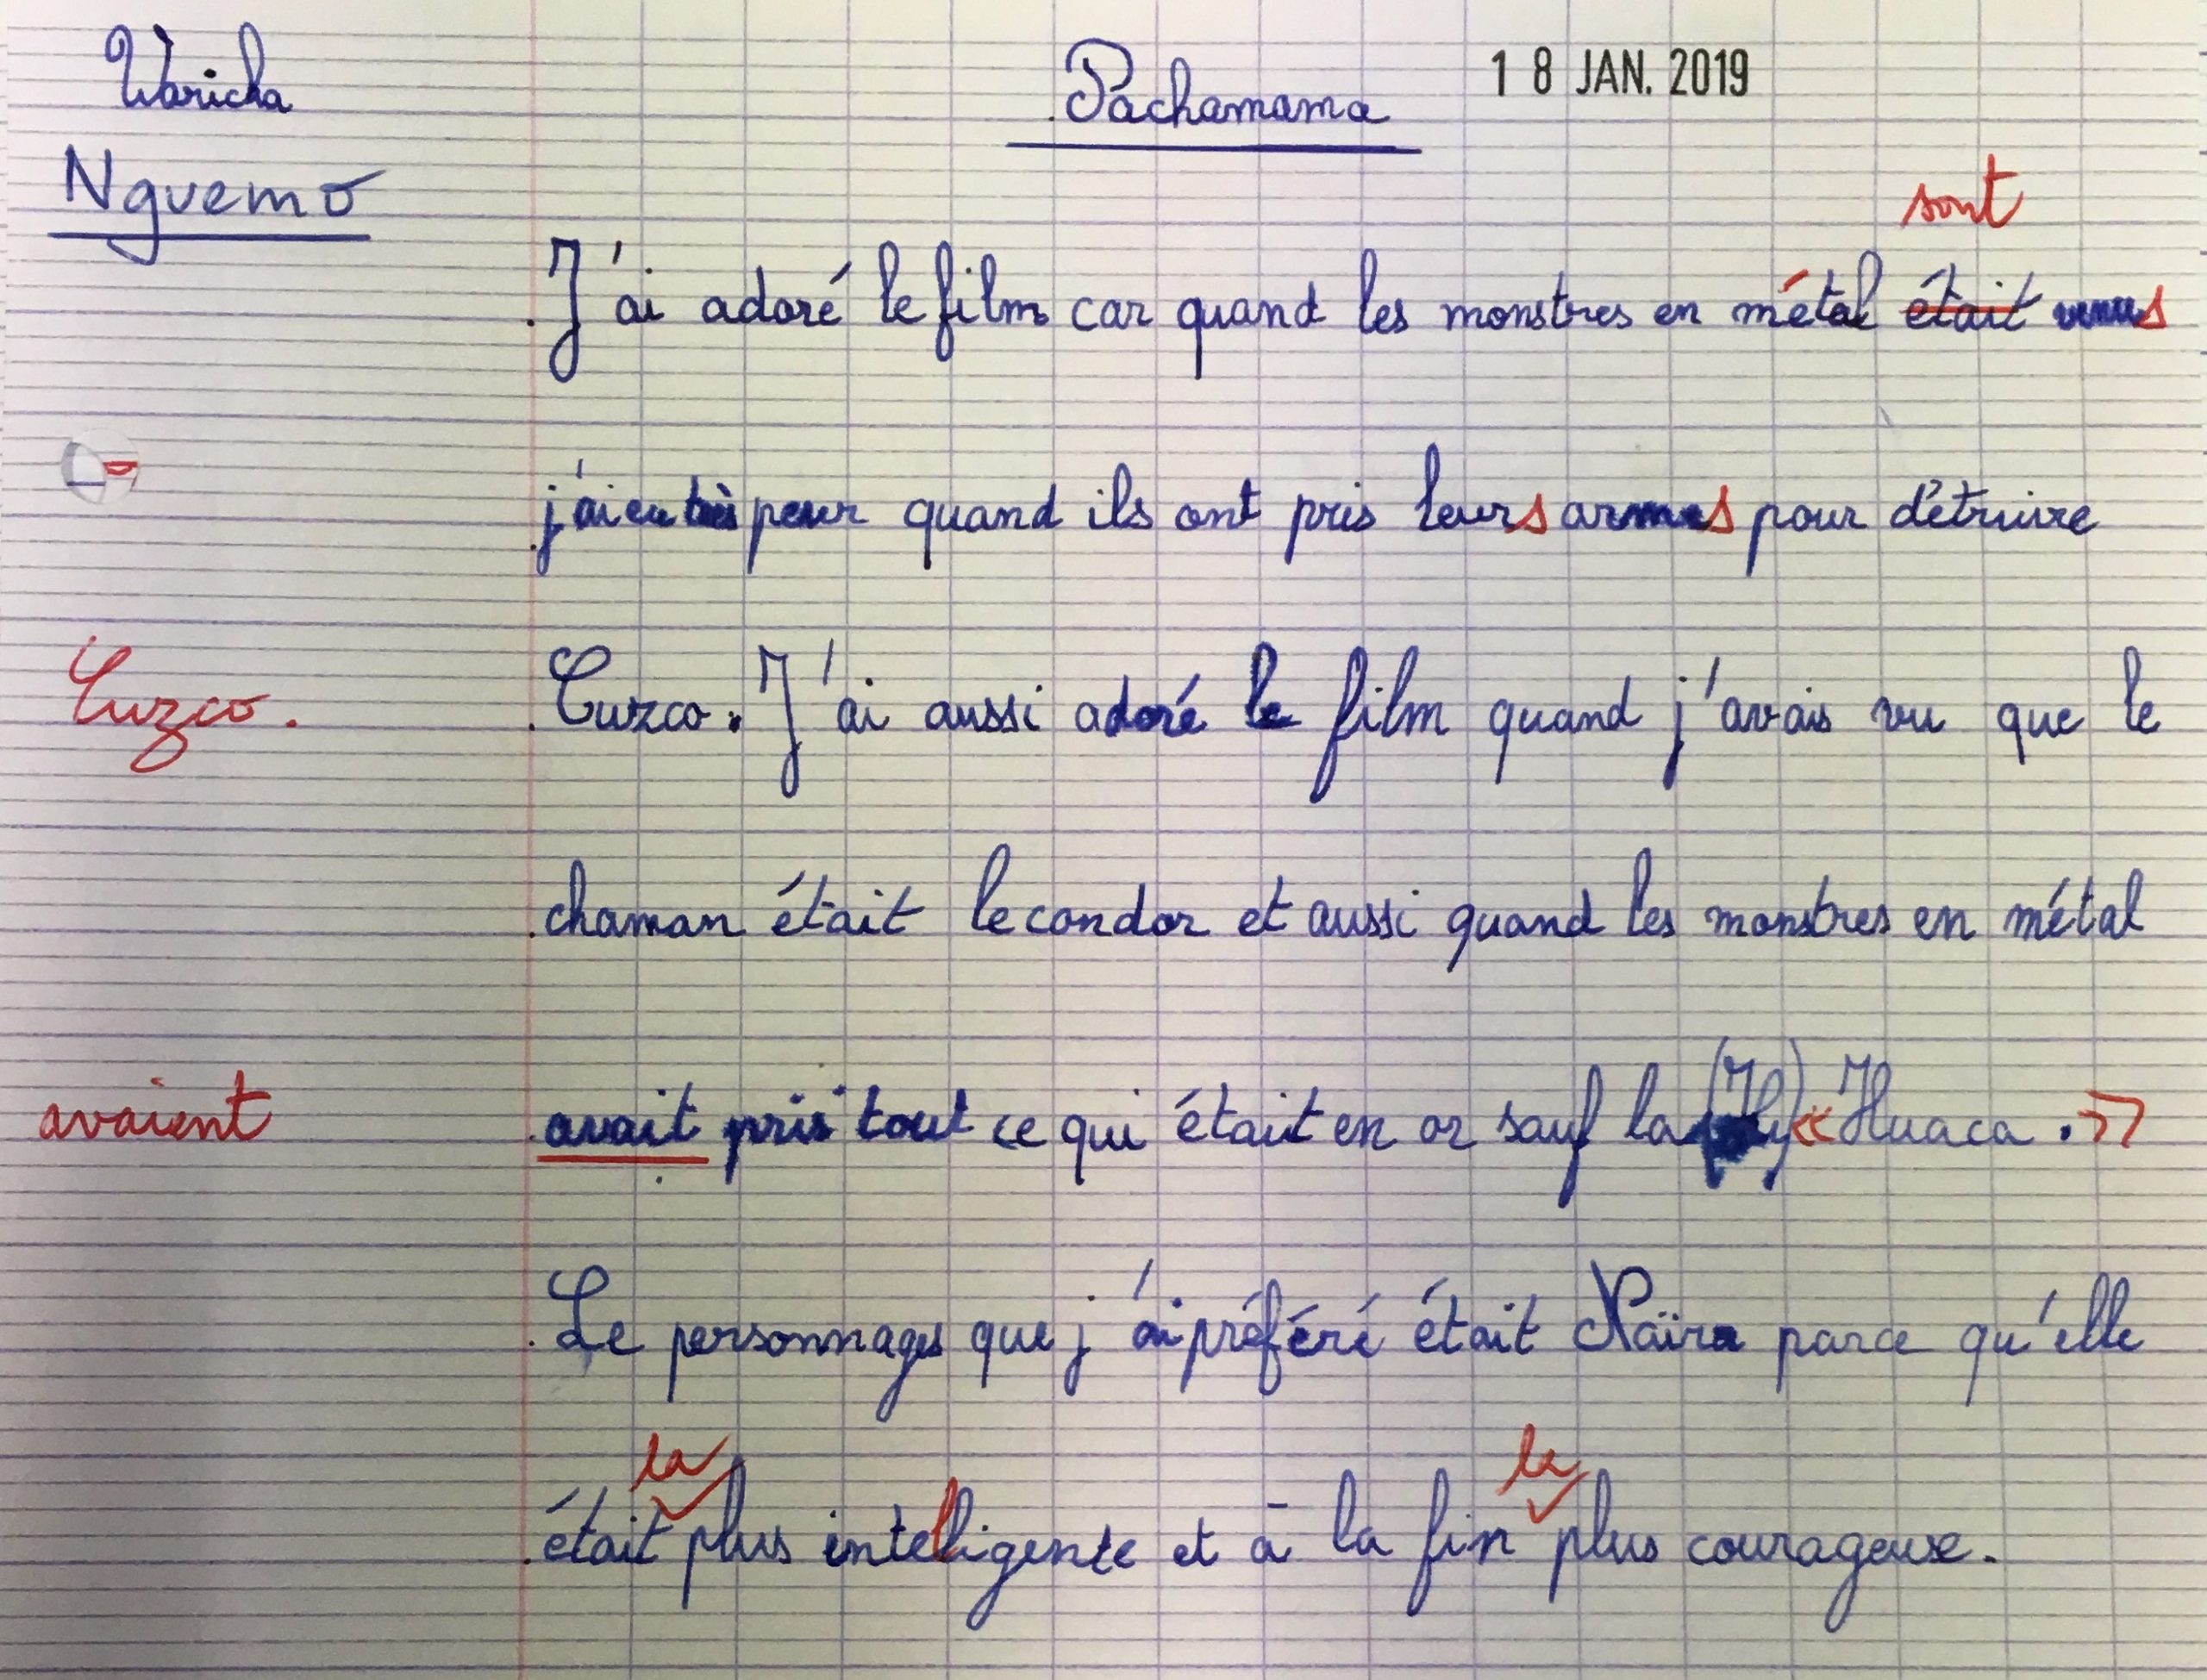 Waricha
Pachamama
18 JAN. 2019
Nguemo
sont
J'ai adoré le film car quand les monstres en métal était venus
j'ai eu très peur quand ils ont pris leurs armes pour détruire
Cuzco.
Cuzco. J'ai aussi adoré le film quand j'avais vu que le
chaman était le condor et aussi quand les monstres en métal
avaient
avait pris tout ce qui était en or sauf la (H) « Huaca. »
Le personnages que j'ai préféré était Naïra parce qu'elle
la la
était plus intelligente et à la fin plus courageuse.